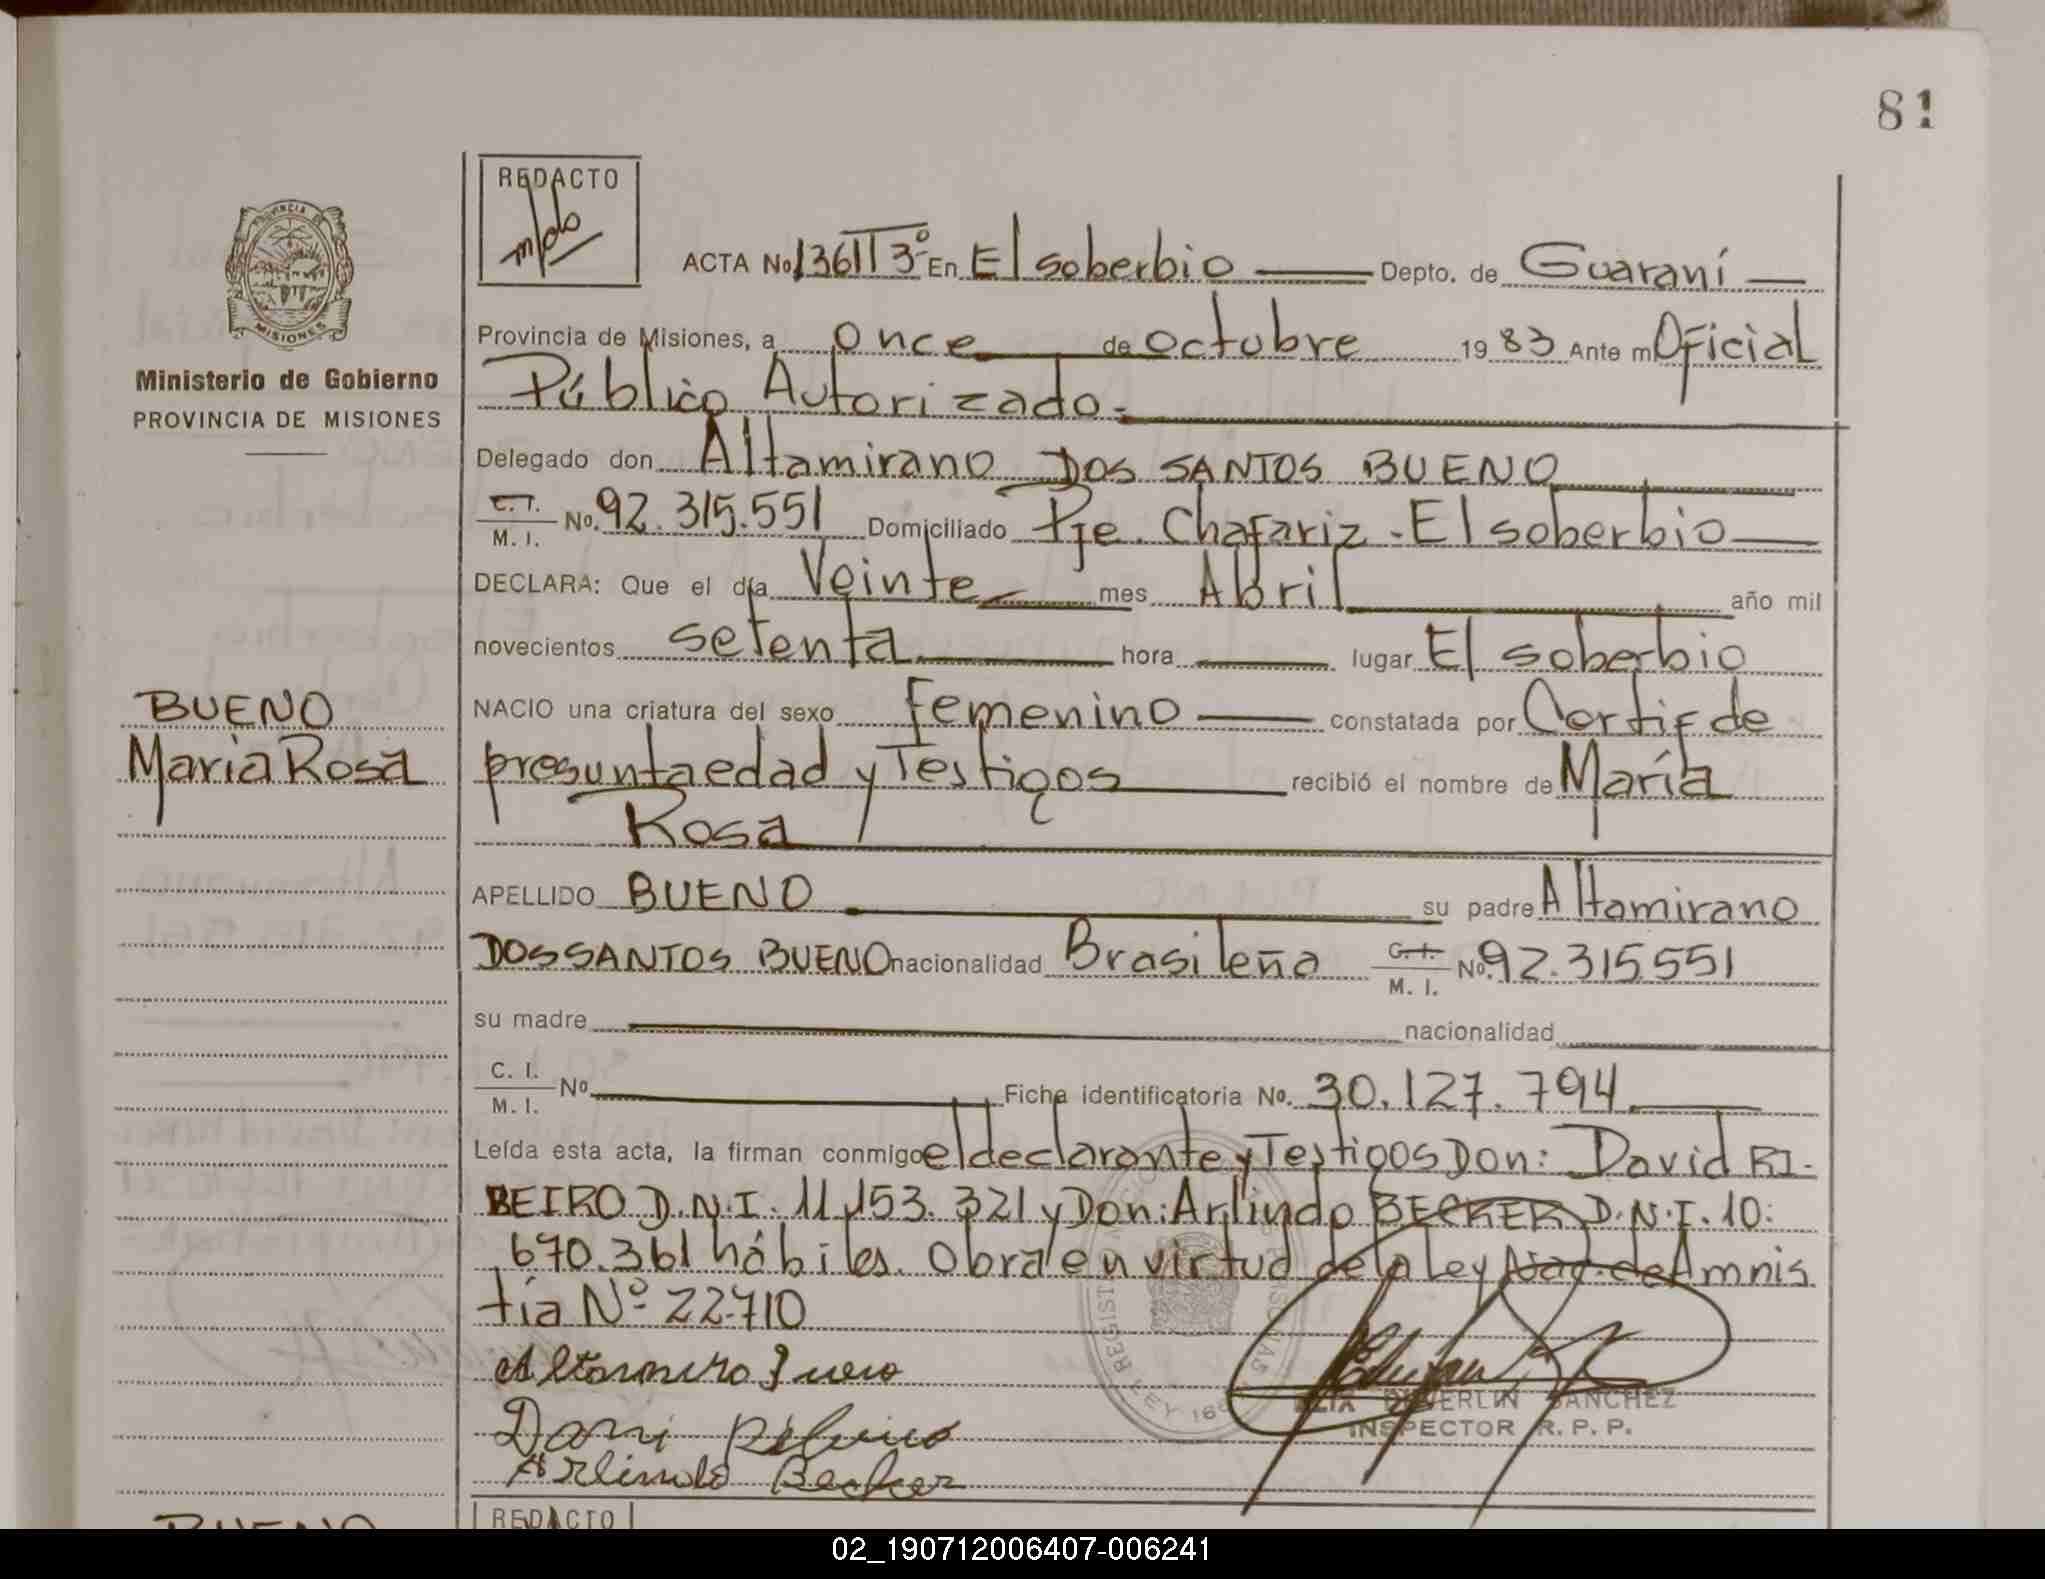 81
REDACTO
PROVINCIA DE
MISIONES
Ministerio de Gobierno
PROVINCIA DE MISIONES
ACTA No 136 T 3º En El soberbio Depto. de Guaraní
Provincia de Misiones, a once de octubre 1983 Ante mi Oficial
Público Autorizado.
Delegado don Altamirano DOS SANTOS BUENO
C.I. M. I. No. 92.315.551 Domiciliado Pje. Chafariz - El soberbio
DECLARA: Que el día Veinte mes Abril año mil
novecientos setenta hora lugar El soberbio
NACIO una criatura del sexo Femenino constatada por Certif de
presunta edad y Testigos recibió el nombre de María
Rosa
BUENO
Maria Rosa
APELLIDO BUENO su padre Altamirano
DOS SANTOS BUENO nacionalidad Brasileña C. I. M. I. No. 92.315.551
su madre nacionalidad
C. I. M. I. No. Ficha identificatoria No. 30.127.794
Leída esta acta, la firman conmigo el declarante y Testigos Don: David RI-
BEIRO D.N.I. 11.153.321 y Don: Arlindo BECKER D.N.I. 10.
670.361 hábiles. Obra en virtud de la Ley Nac. de Amnis
tía Nº 22.710
Arlindo Becker
SANCHEZ
INSPECTOR R. P. P.
REDACTO
BUENO
02_190712006407-006241